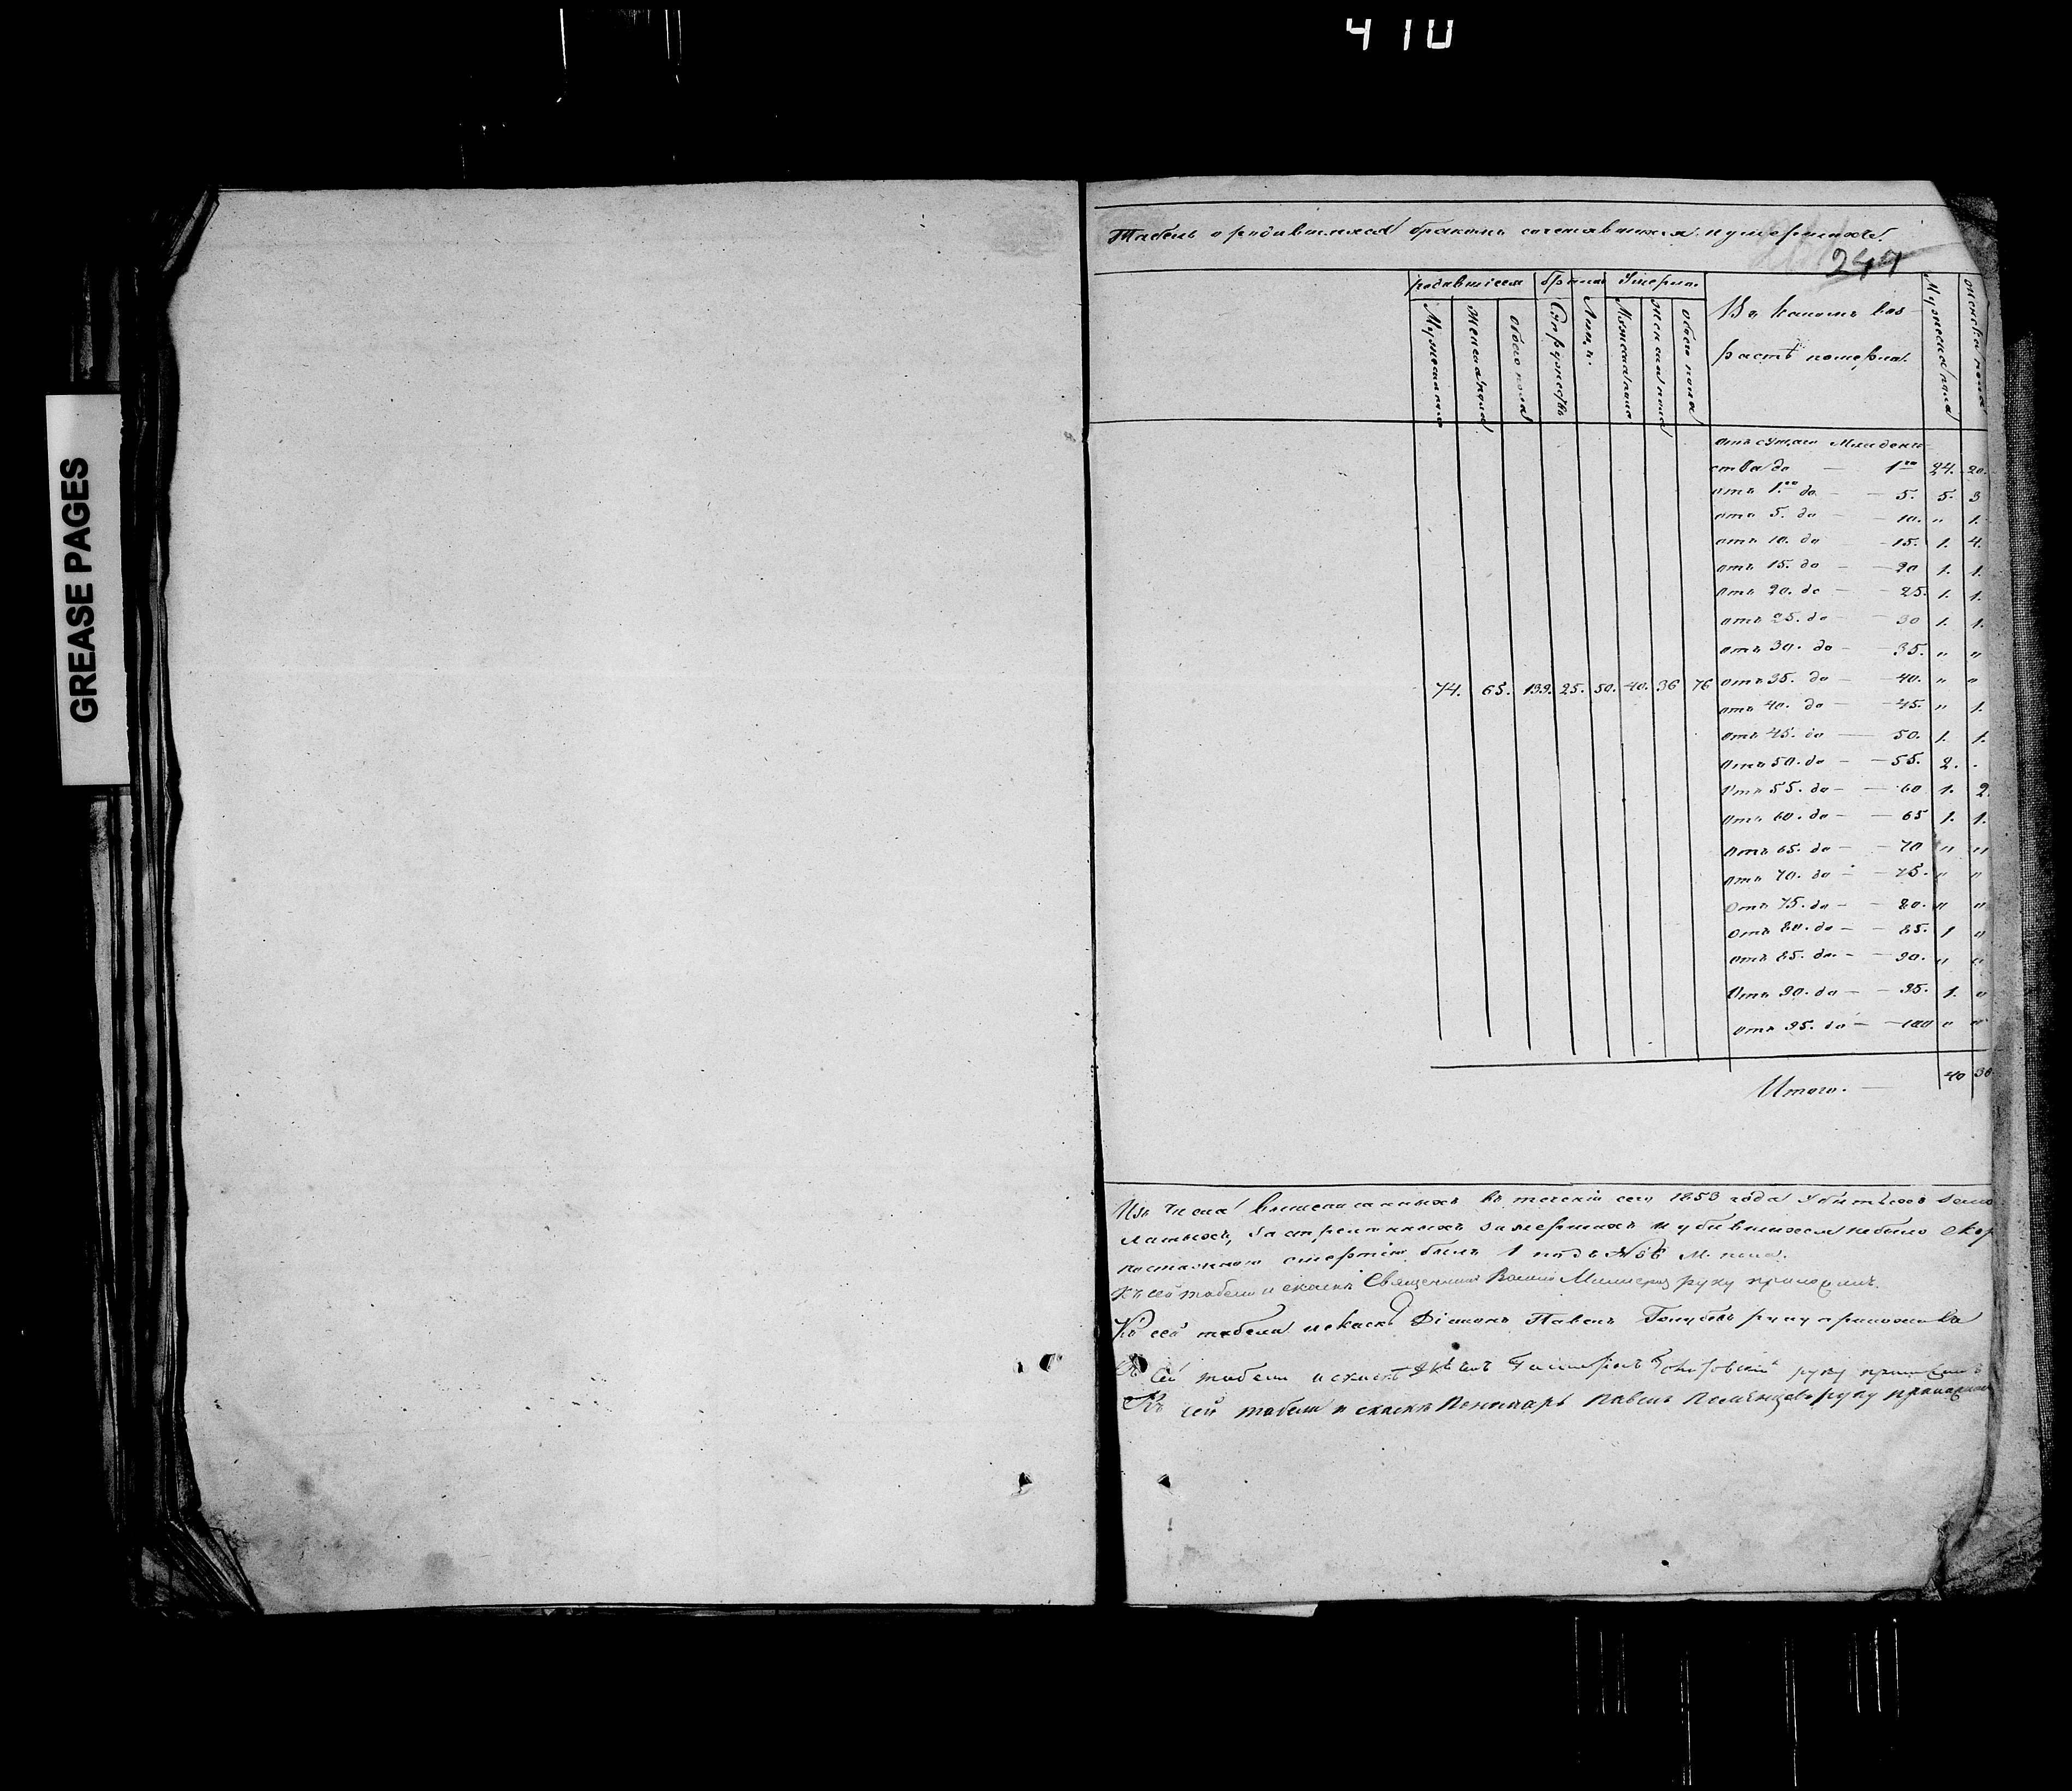 410
GREASE PAGES
Табель о родившихся бракомъ сочетавшихся и умершихъ.
247
родившіеся браки Умерли
Мужеска пола Женска пола обоего пола Супружествъ Лицъ Мужеска пола Женска пола обоего пола
Въ какомъ воз
растѣ померли.
Мужеска пола женска пола
74. 65. 139. 25. 50. 40. 36 76
отъ сущаго Младенче
ства до — 1го 24. 20.
отъ 1го до — 5. 5. 3
отъ 5. до — 10. „ 1.
отъ 10. до — 15. 1. 4.
отъ 15. до — 20 1. 1.
отъ 20. до — 25. 1. 1.
отъ 25. до — 30 1. 1.
отъ 30. до — 35. „ „
отъ 35. до — 40. „ „
отъ 40. до — 45. „ 1.
отъ 45. до — 50. 1. 1.
отъ 50. до — 55. 2. .
Отъ 55. до — 60 1. 2.
отъ 60. до — 65 1. 1.
отъ 65. до — 70 „ „
отъ 70. до — 75. „ „
отъ 75. до — 80. „ „
отъ 80. до — 85. 1 „
отъ 85. до — 90. „ „
Отъ 90. до — 95. 1. „
отъ 95. до — 100 „ „
Итого. — 40 36.
Изъ числа вышеписанныхъ въ теченіи сего 1853 года Убитыхъ
застреленныхъ замерзшихъ и убившихся небыло скор
постижною смертію былъ 1 подъ № М. пола.
Къ сей табели и сказкѣ Священникъ руку приложилъ.
Къ сей табели и сказкѣ Діаконъ Павелъ Голубевъ руку приложилъ
Къ Сей табели и сказкѣ руку приложилъ
Къ сей табели и сказкѣ Пономарь Павелъ руку приложилъ